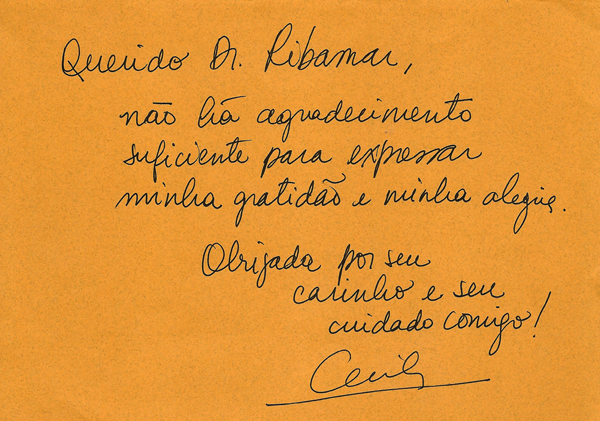 Querido Dr. Ribamar,
não há agradecimento
suficiente para expressar
minha gratidão e minha alegria.
Obrigada por seu
carinho e seu
cuidado comigo!